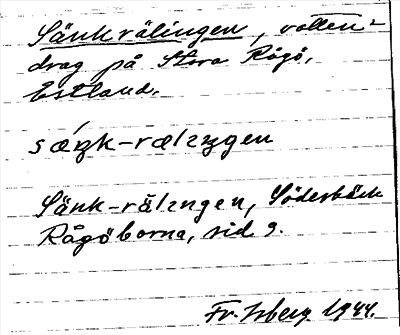 Sänkrälingen, vatten-
drag på Stora Rågö,
Estland.
sǽŋk-rælıŋgen
Sänk-rälıngen, Söderbäck
Rågöborna, sid 9.
Fr. Isberg 1944.